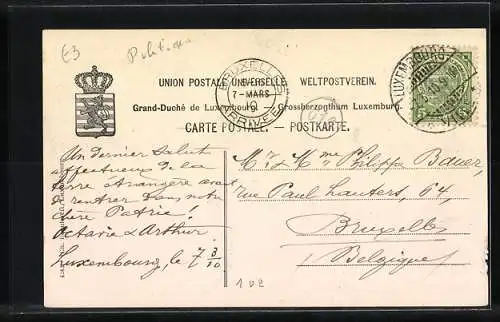 E3
Politica
BRUXELLES
7-MARS
10
ARRIVEE
UNION POSTALE UNIVERSELLE. WELTPOSTVEREIN.
Grand-Duché de Luxembourg. — Grossherzogthum Luxemburg.
CARTE POSTALE. — POSTKARTE.
LUXEMBOURG
Un dernier salut
affectueux de la
terre étrangère avant
de rentrer dans notre
chère Patrie!
Octavie & Arthur.
Luxembourg, le 7 3/10
Mr & Mme Philippe Bauer,
rue Paul Lauters, 64,
Bruxelles
(Belgique)
102